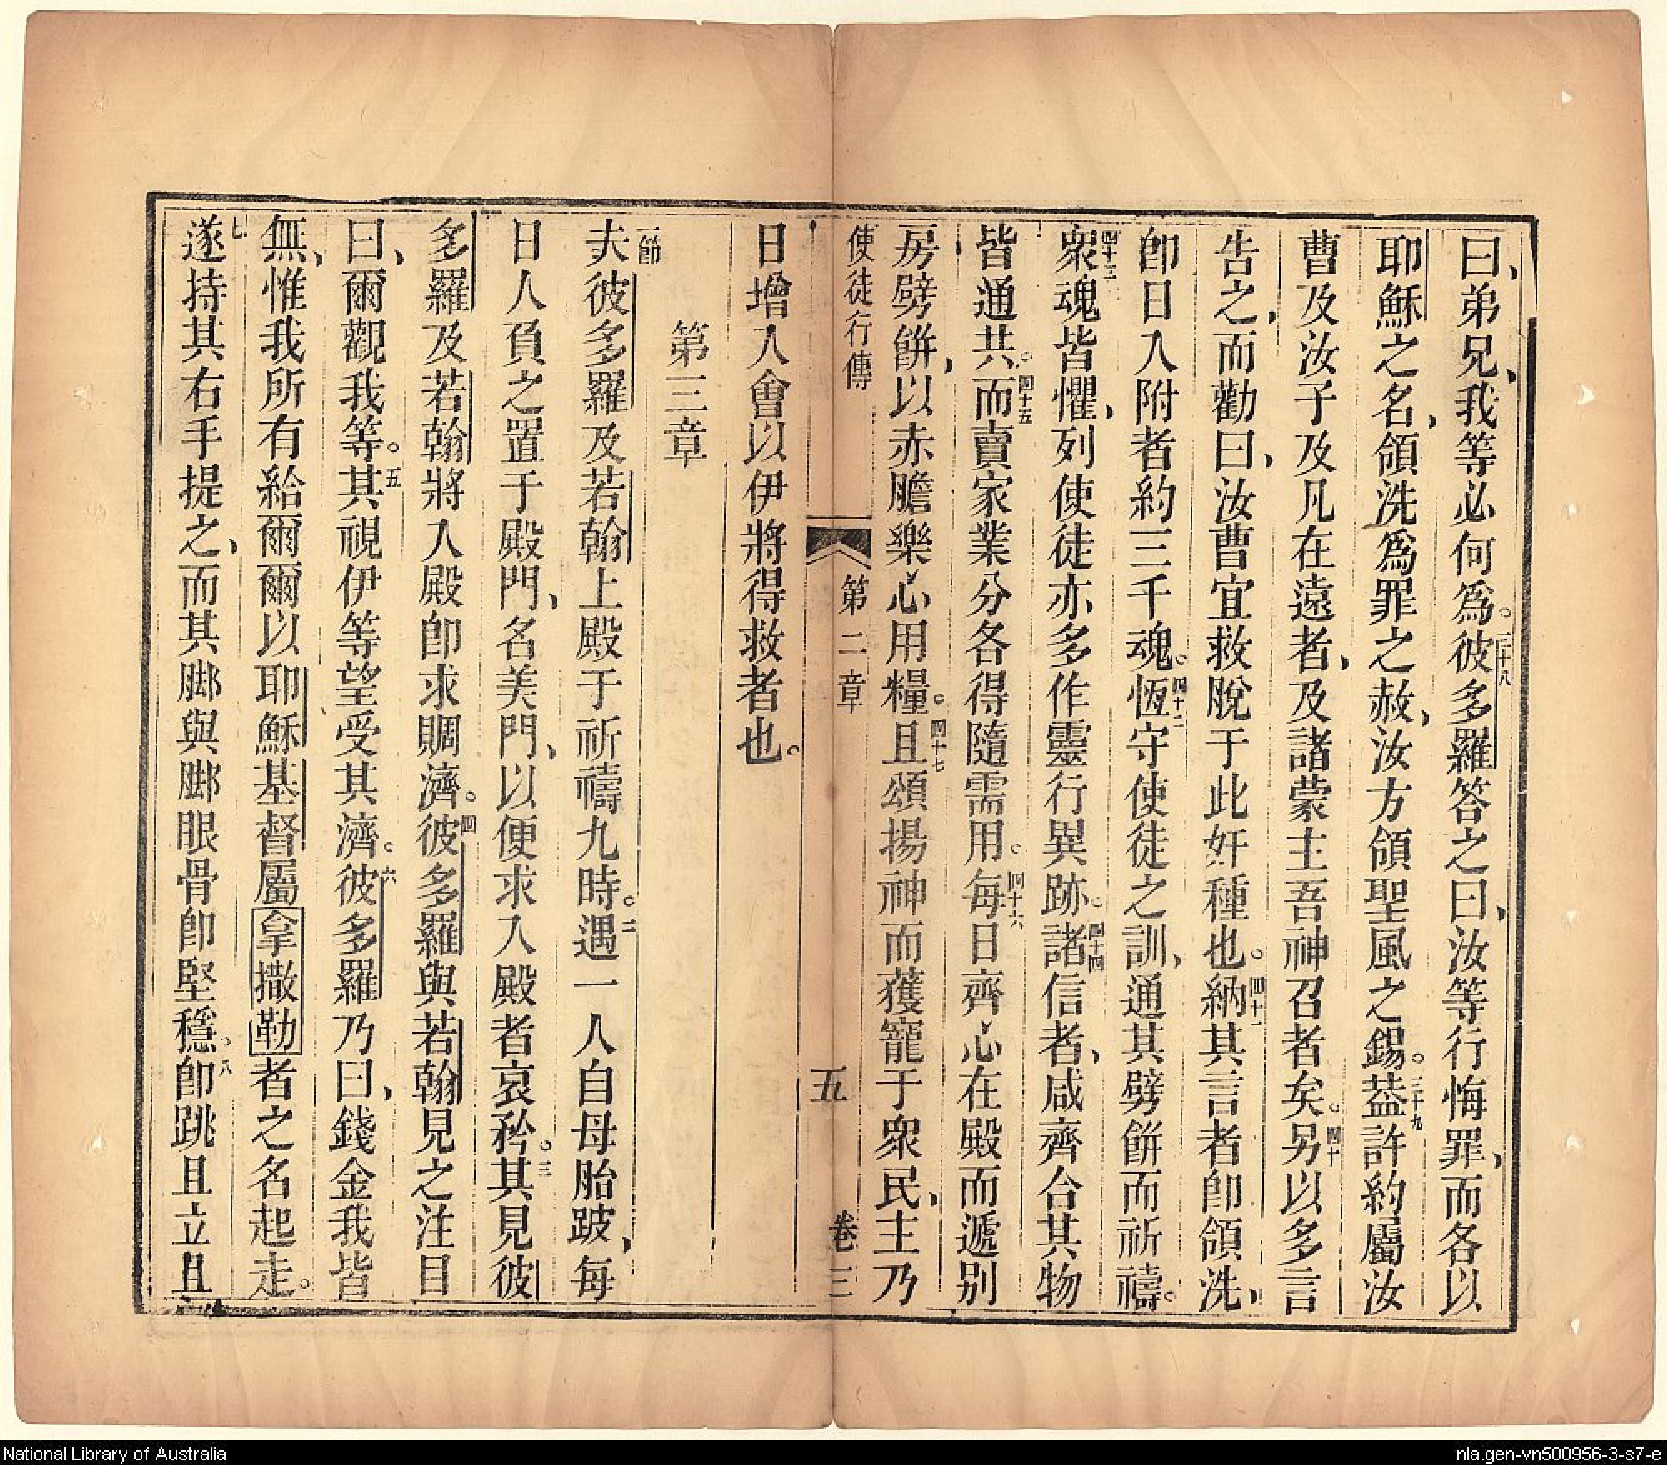 曰、弟兄、我等必何爲。三十八彼多羅答之曰、汝等行悔罪、而各以
耶穌之名、領洗爲罪之赦、汝方領聖風之錫。三十九葢許約屬汝
曹及汝子及凡在遠者、及諸蒙主吾神召者矣。四十另以多言
告之、而勸曰、汝曹宜救脫于此奸種也。四十一納其言者卽領洗、
卽日入附者約三千魂。四十二恆守使徒之訓、通其劈餅而祈禱。
四十三衆魂皆懼、列使徒亦多作靈行異跡。四十四諸信者、咸齊合其物
皆通共。四十五而賣家業分各得隨需用。四十六每日齊心在殿而遞別
房劈餅、以赤膽樂心用糧。四十七且頌揚神而獲寵于衆民、主乃
使徒行傳 第二章 五 卷三
日增入會以伊將得救者也。
第三章
一節夫彼多羅及若翰上殿于祈禱九時。二遇一人自母胎跛、每
日人負之置于殿門、名美門、以便求入殿者哀矜。三其見彼
多羅及若翰將入殿卽求賙濟。四彼多羅與若翰見之注目
曰、爾觀我等。五其視伊等望受其濟。六彼多羅乃曰、錢金我皆
無、惟我所有給爾爾以耶穌基督屬拿撒勒者之名起走。
七遂持其右手提之、而其脚與脚眼骨卽堅穩、八卽跳且立且
National Library of Australia
nla.gen-vn500956-3-s7-e